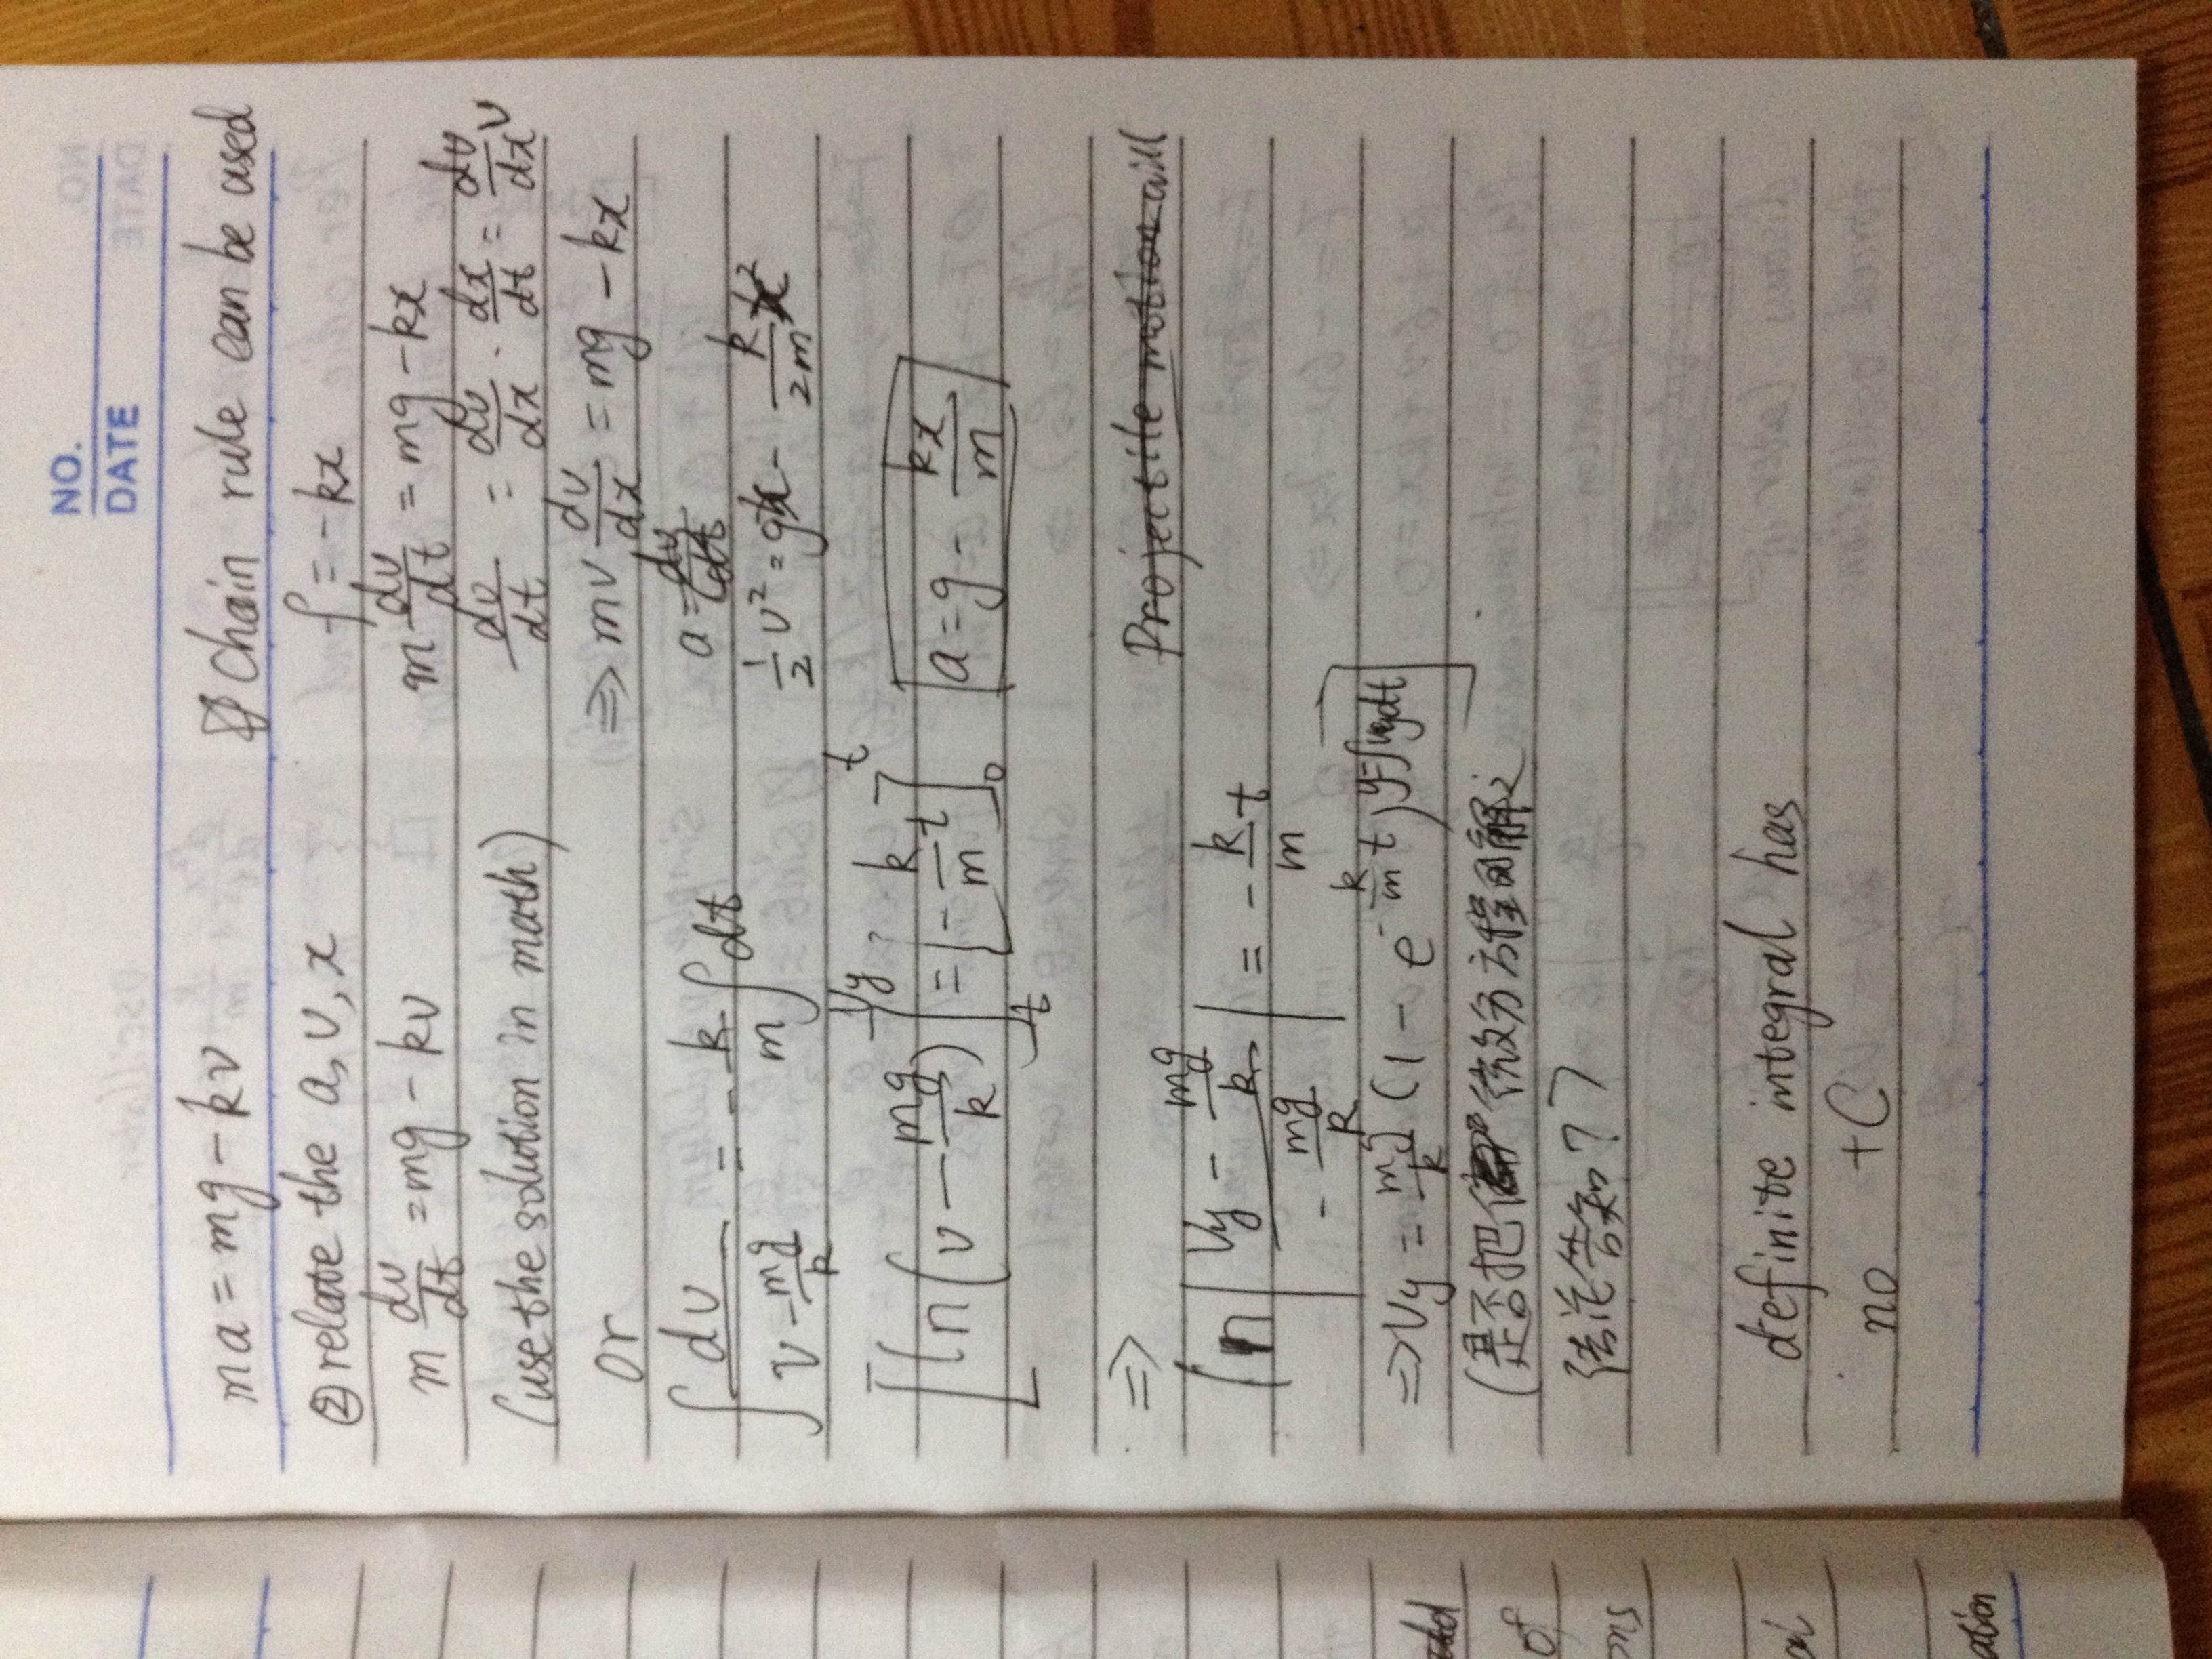 NO.
DATE
ma = mg - kv
② relate the a, v, x
m dv/dt = mg - kv
(use the solution in math)
or
∫ dv/(v - mg/k) = - k/m ∫ dt
[ln(v - mg/k)]_t^Vy = [- k/m t]_0^t
⇒
ln |(Vy - mg/k)/(- mg/k)| = - k/m t
⇒ Vy = mg/k (1 - e^(- k/m t)) y=∫vydt]
(是否把 微分方程的解之
结论告知??
definite integral has
no +C
Chain rule can be used
f = -kx
m dv/dt = mg - kx
dv/dt = dv/dx · dx/dt = dv/dx v
⇒ mv dv/dx = mg - kx
a = dv/dt
1/2 v² = gx - k/2m x²
a = g - kx/m
Projectile motion will
of
ons
al
ation